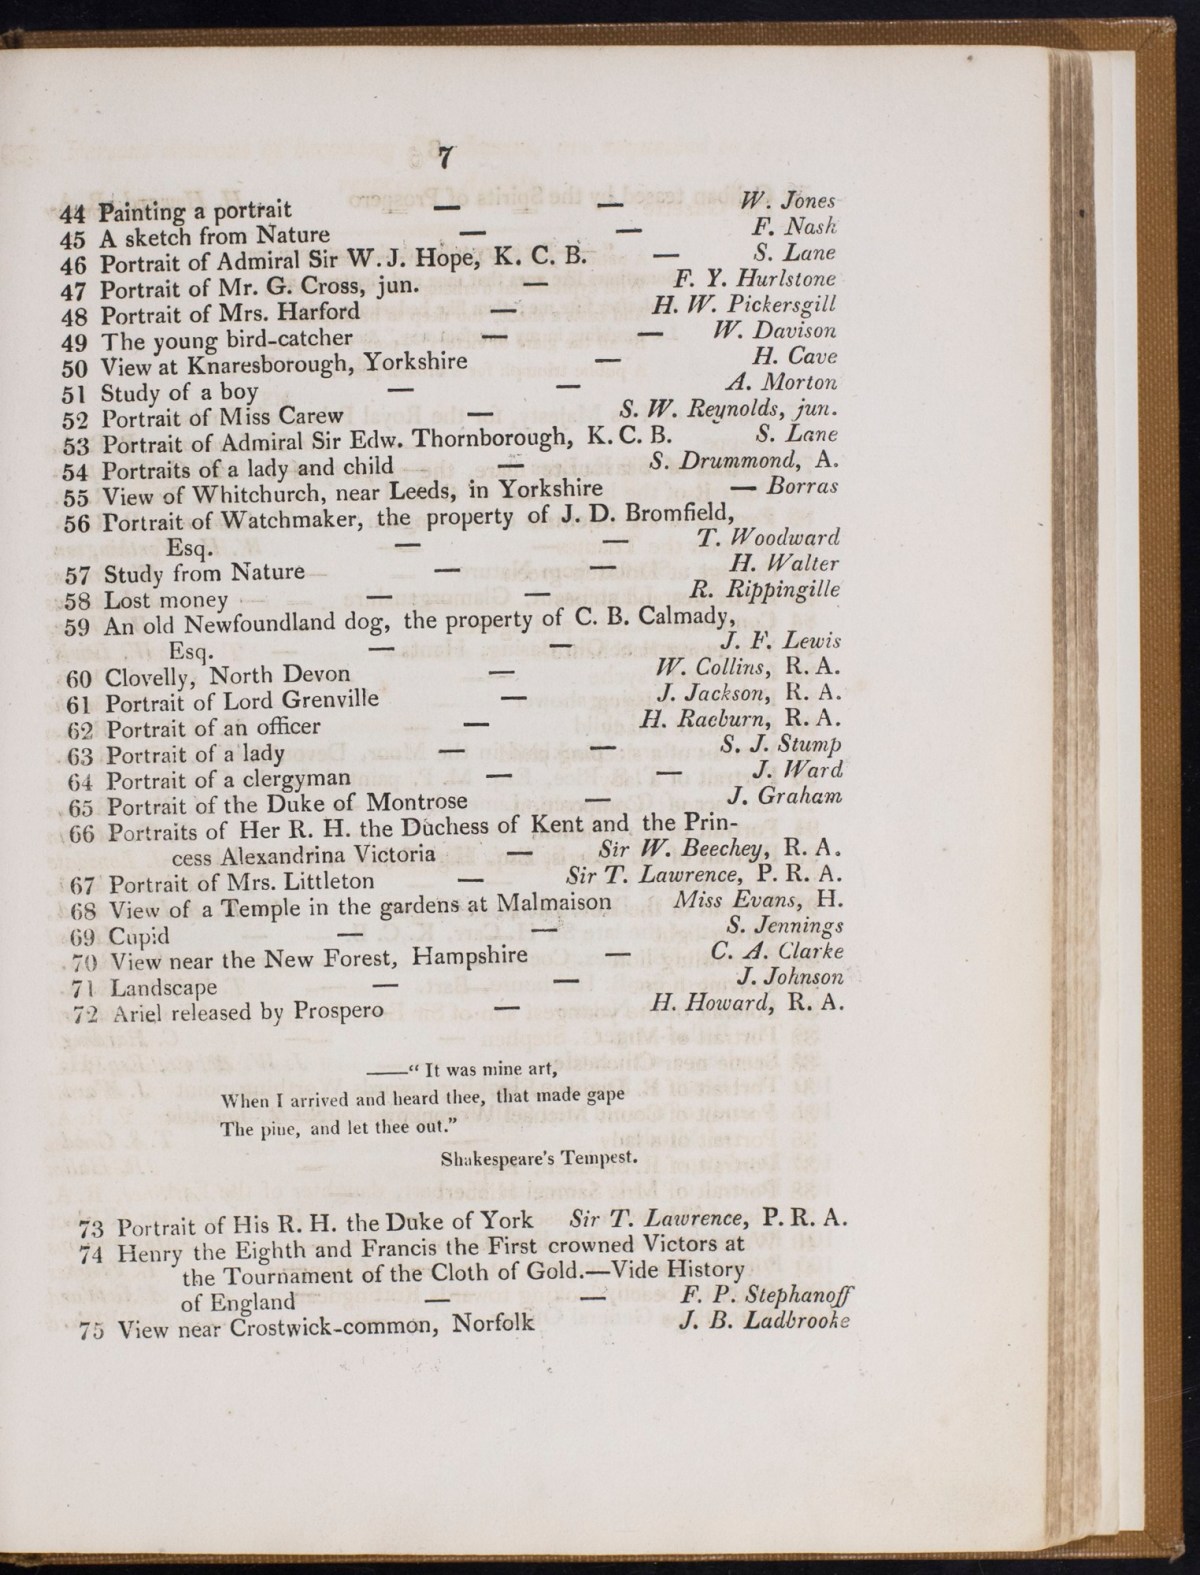 7
44 Painting a portrait — — W. Jones
45 A sketch from Nature — — F. Nash
46 Portrait of Admiral Sir W. J. Hope, K. C. B. — S. Lane
47 Portrait of Mr. G. Cross, jun. — F. Y. Hurlstone
48 Portrait of Mrs. Harford — H. W. Pickersgill
49 The young bird-catcher — — W. Davison
50 View at Knaresborough, Yorkshire — H. Cave
51 Study of a boy — — A. Morton
52 Portrait of Miss Carew — S. W. Reynolds, jun.
53 Portrait of Admiral Sir Edw. Thornborough, K. C. B. S. Lane
54 Portraits of a lady and child — S. Drummond, A.
55 View of Whitchurch, near Leeds, in Yorkshire — Borras
56 Portrait of Watchmaker, the property of J. D. Bromfield,
Esq. — — T. Woodward
57 Study from Nature — — H. Walter
58 Lost money — — R. Rippingille
59 An old Newfoundland dog, the property of C. B. Calmady,
Esq. — — J. F. Lewis
60 Clovelly, North Devon — W. Collins, R. A.
61 Portrait of Lord Grenville — J. Jackson, R. A.
62 Portrait of an officer — H. Raeburn, R. A.
63 Portrait of a lady — — S. J. Stump
64 Portrait of a clergyman — — J. Ward
65 Portrait of the Duke of Montrose — J. Graham
66 Portraits of Her R. H. the Duchess of Kent and the Prin-
cess Alexandrina Victoria — Sir W. Beechey, R. A.
67 Portrait of Mrs. Littleton — Sir T. Lawrence, P. R. A.
68 View of a Temple in the gardens at Malmaison Miss Evans, H.
69 Cupid — — S. Jennings
70 View near the New Forest, Hampshire — C. A. Clarke
71 Landscape — — J. Johnson
72 Ariel released by Prospero — H. Howard, R. A.
——“ It was mine art,
When I arrived and heard thee, that made gape
The pine, and let thee out.”
Shakespeare's Tempest.
73 Portrait of His R. H. the Duke of York Sir T. Lawrence, P. R. A.
74 Henry the Eighth and Francis the First crowned Victors at
the Tournament of the Cloth of Gold.—Vide History
of England — — F. P. Stephanoff
75 View near Crostwick-common, Norfolk J. B. Ladbrooke